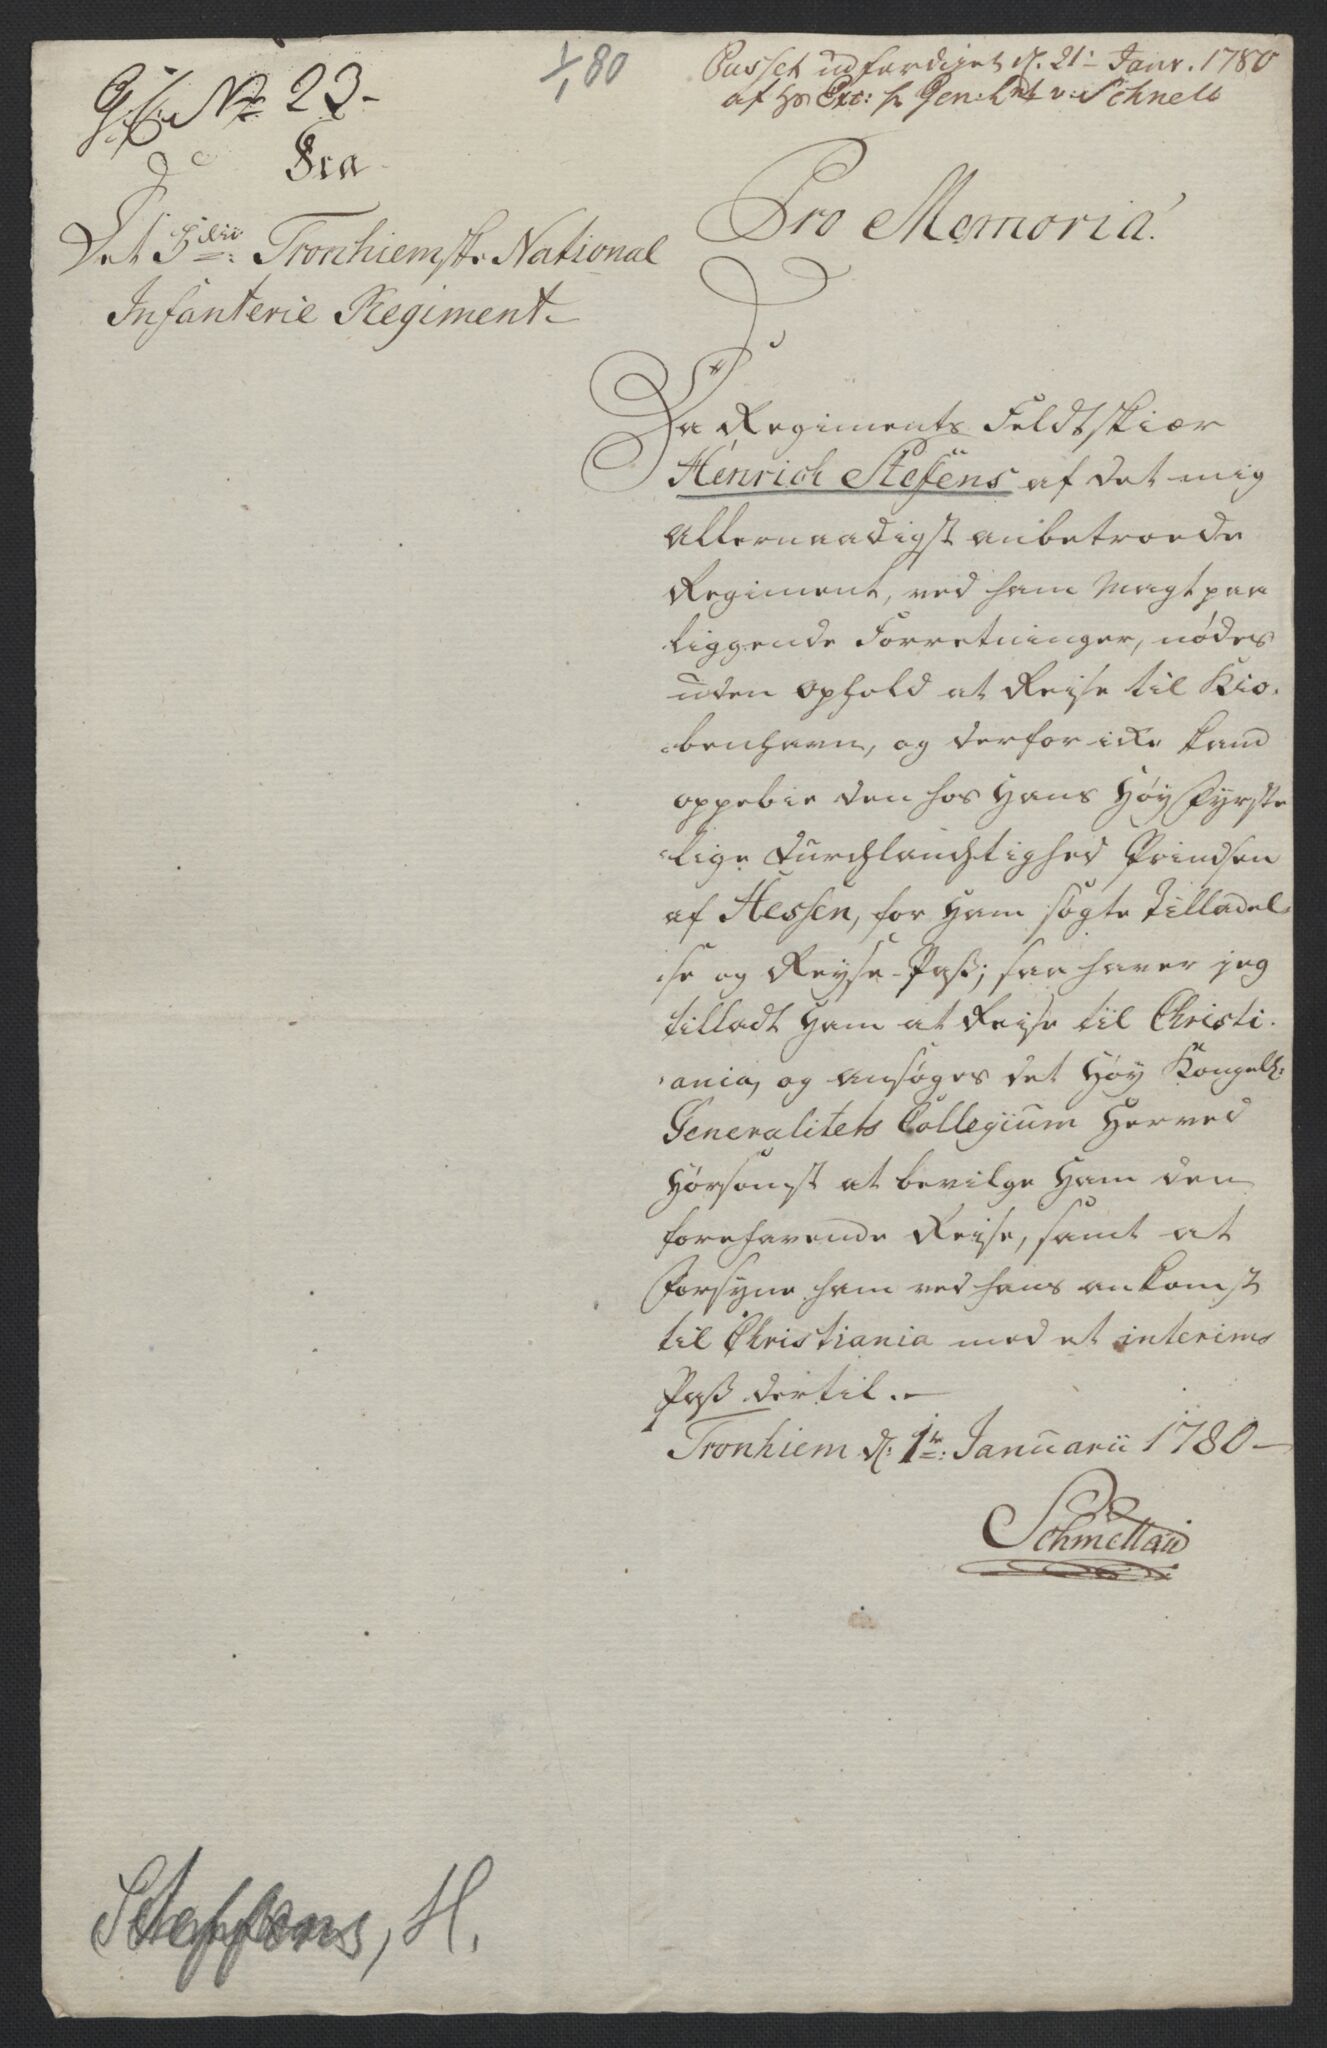 No 23.
Fra
Det Tronhiemske National
Infanterie Regiment.
1/1 80
Passet udfærdiget d. 21 Janr. 1780
af Hs Exc: Hr Gen: Lnt v: Schnell
Pro Memoria.
Da Regiments Feldtskiær
Henrich Stefens af det mig
allernaadigst anbetroede
Regiment, ved ham Magt paa
liggende Forretninger, nødes
uden ophold at Reise til Kiø-
benhavn, og derfor icke kand
oppebie den hos Hans Høy Fyrste
lige Durchlauchtighed Prindsen
af Hessen, for Ham søgte Tilladel-
se og Reyse-Pass; saa haver jeg
tilladt Ham at Reise til Christi-
ania, og ansøges det Høy Kongel:
Generalitets Collegium Herved
Hørsomst at bevilge Ham den
forehavende Reise, samt at
Forsyne ham ved hans ankomst
til Christiania med et interims
Pass dertil.-
Tronhiem d: 1te: Januarii 1780-
Schmettau
Steffens, H.